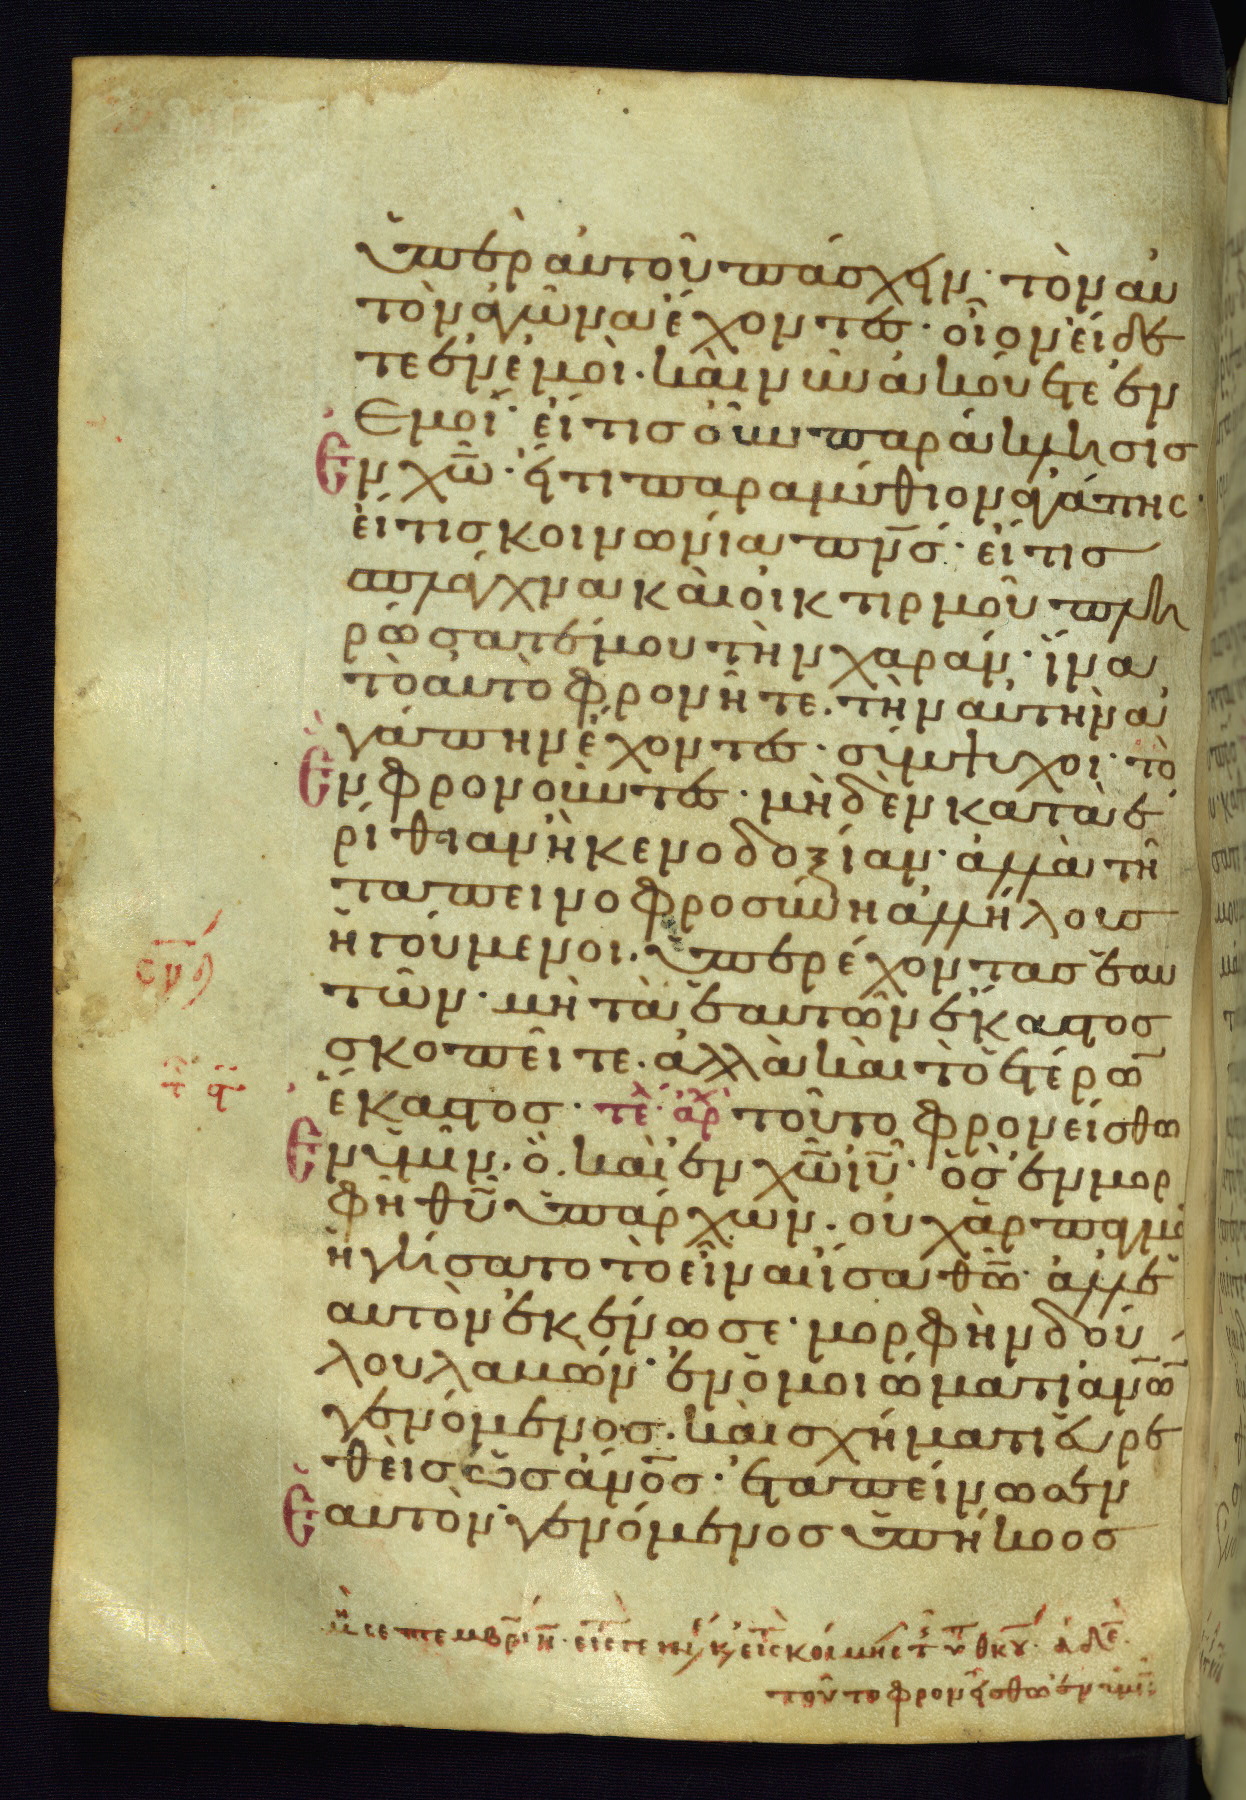 ὑπὲρ αὐτοῦ πάσχειν· τὸν αὐ
τὸν ἀγῶνα ἔχοντες· οἷον εἴδε
τε ἐν ἐμοὶ· καὶ νῦν ἀκούετε ἐν
ἐμοί· εἴ τις οὖν παράκλησις
ἐν χῶ· εἴ τι παραμύθιον ἀγάπης·
εἴ τις κοινωνία πνς· εἴ τις
σπλάγχνα καὶ οἰκτιρμοὶ πλη
ρώσατέ μου τὴν χαράν· ἵνα
τὸ αὐτὸ φρονῆτε· τὴν αὐτὴν ἀ
γάπην ἔχοντες· σύμψυχοι· τὸ
ἓν φρονοῦντες· μηδὲν κατὰ ἐ
ρίθειαν ἢ κενοδοξίαν· ἀλλὰ τῆ
ταπεινοφροσύνη ἀλλήλους
ἡγούμενοι· ὑπερέχοντας ἑαυ
τῶν· μὴ τὰ ἑαυτῶν ἕκαστος
σκοπεῖτε· ἀλλὰ καὶ τὸ ἑτέρω
ἕκαστος· τε αρχ τοῦτο φρονείσθω
ἐν ὑμῖν· ὃ καὶ ἐν χῶ ιῦ· ὃς ἐν μορ
φῆ θῦ ὑπάρχων· οὐχ ἁρπαγμὸ
ἡγήσατο τὸ εἶναι ἴσα θῶ· ἀλλ' ἑ
αυτὸν ἐκένωσε· μορφὴν δού
λου λαβών· ἐν ὁμοιώματι ἀνω
γενόμενος· καὶ σχήματι εὑρε
θεὶς ὡς ἀνος· ἐταπείνωσεν
ἑαυτὸν· γενόμενος ὑπήκοος
τοῦτο φρονείσθω ἐν ὑμῖν